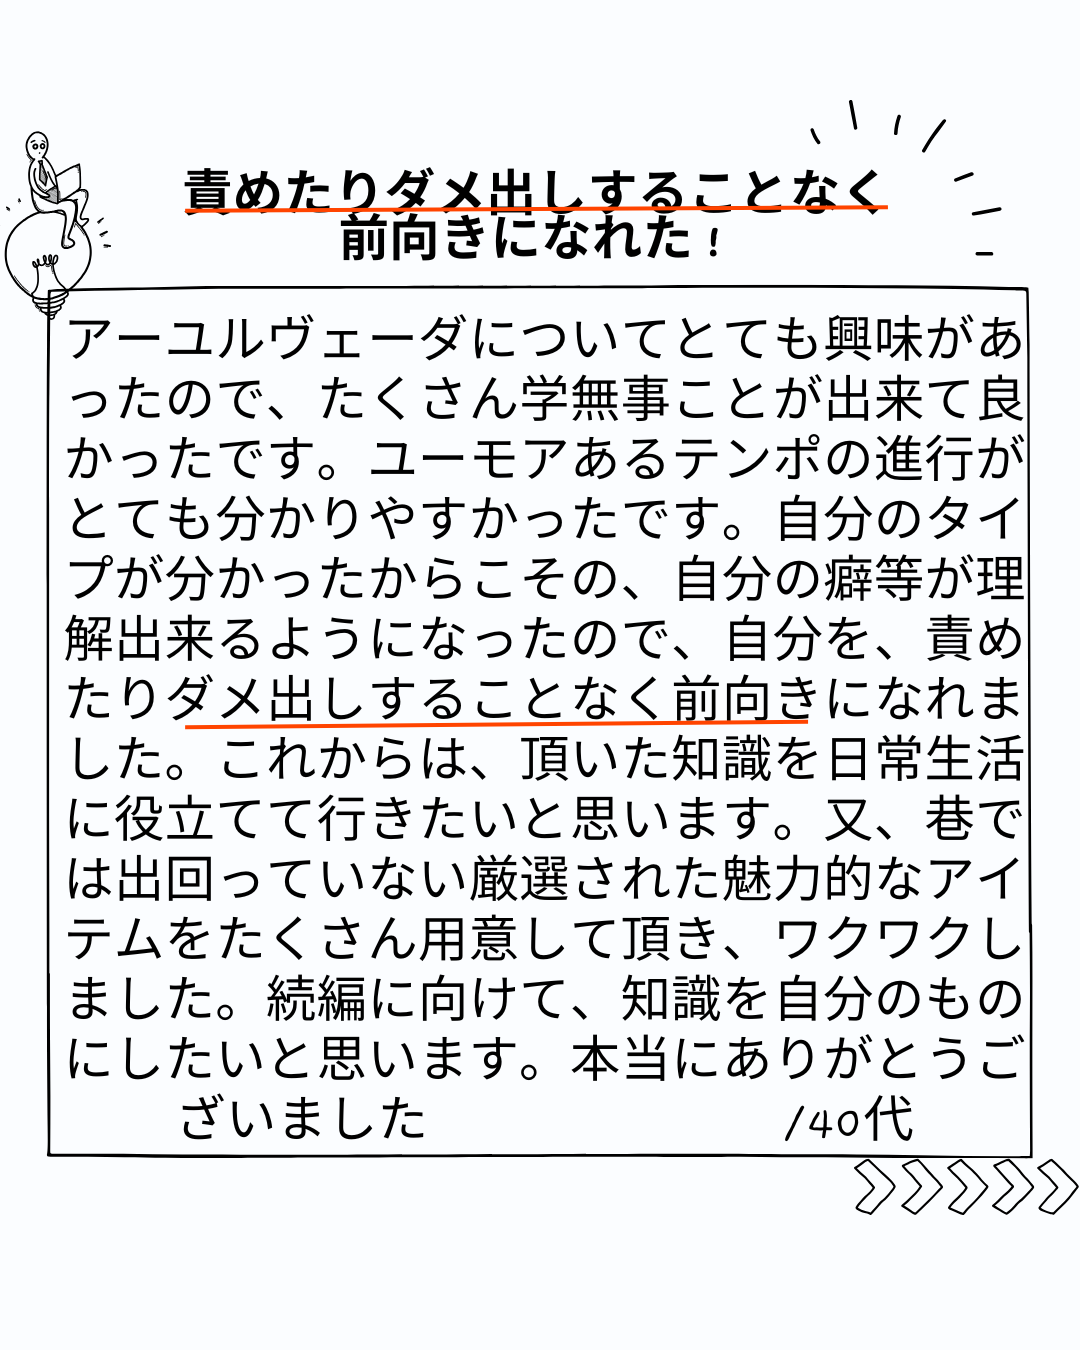 責めたりダメ出しすることなく
前向きになれた！
アーユルヴェーダについてとても興味があ
ったので、たくさん学無事ことが出来て良
かったです。ユーモアあるテンポの進行が
とても分かりやすかったです。自分のタイ
プが分かったからこその、自分の癖等が理
解出来るようになったので、自分を、責め
たりダメ出しすることなく前向きになれま
した。これからは、頂いた知識を日常生活
に役立てて行きたいと思います。又、巷で
は出回っていない厳選された魅力的なアイ
テムをたくさん用意して頂き、ワクワクし
ました。続編に向けて、知識を自分のもの
にしたいと思います。本当にありがとうご
ざいました /40代